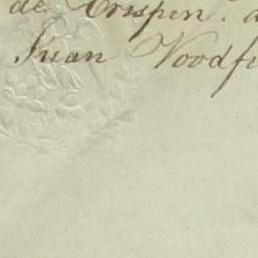 de Crispin. a
Juan Woodf